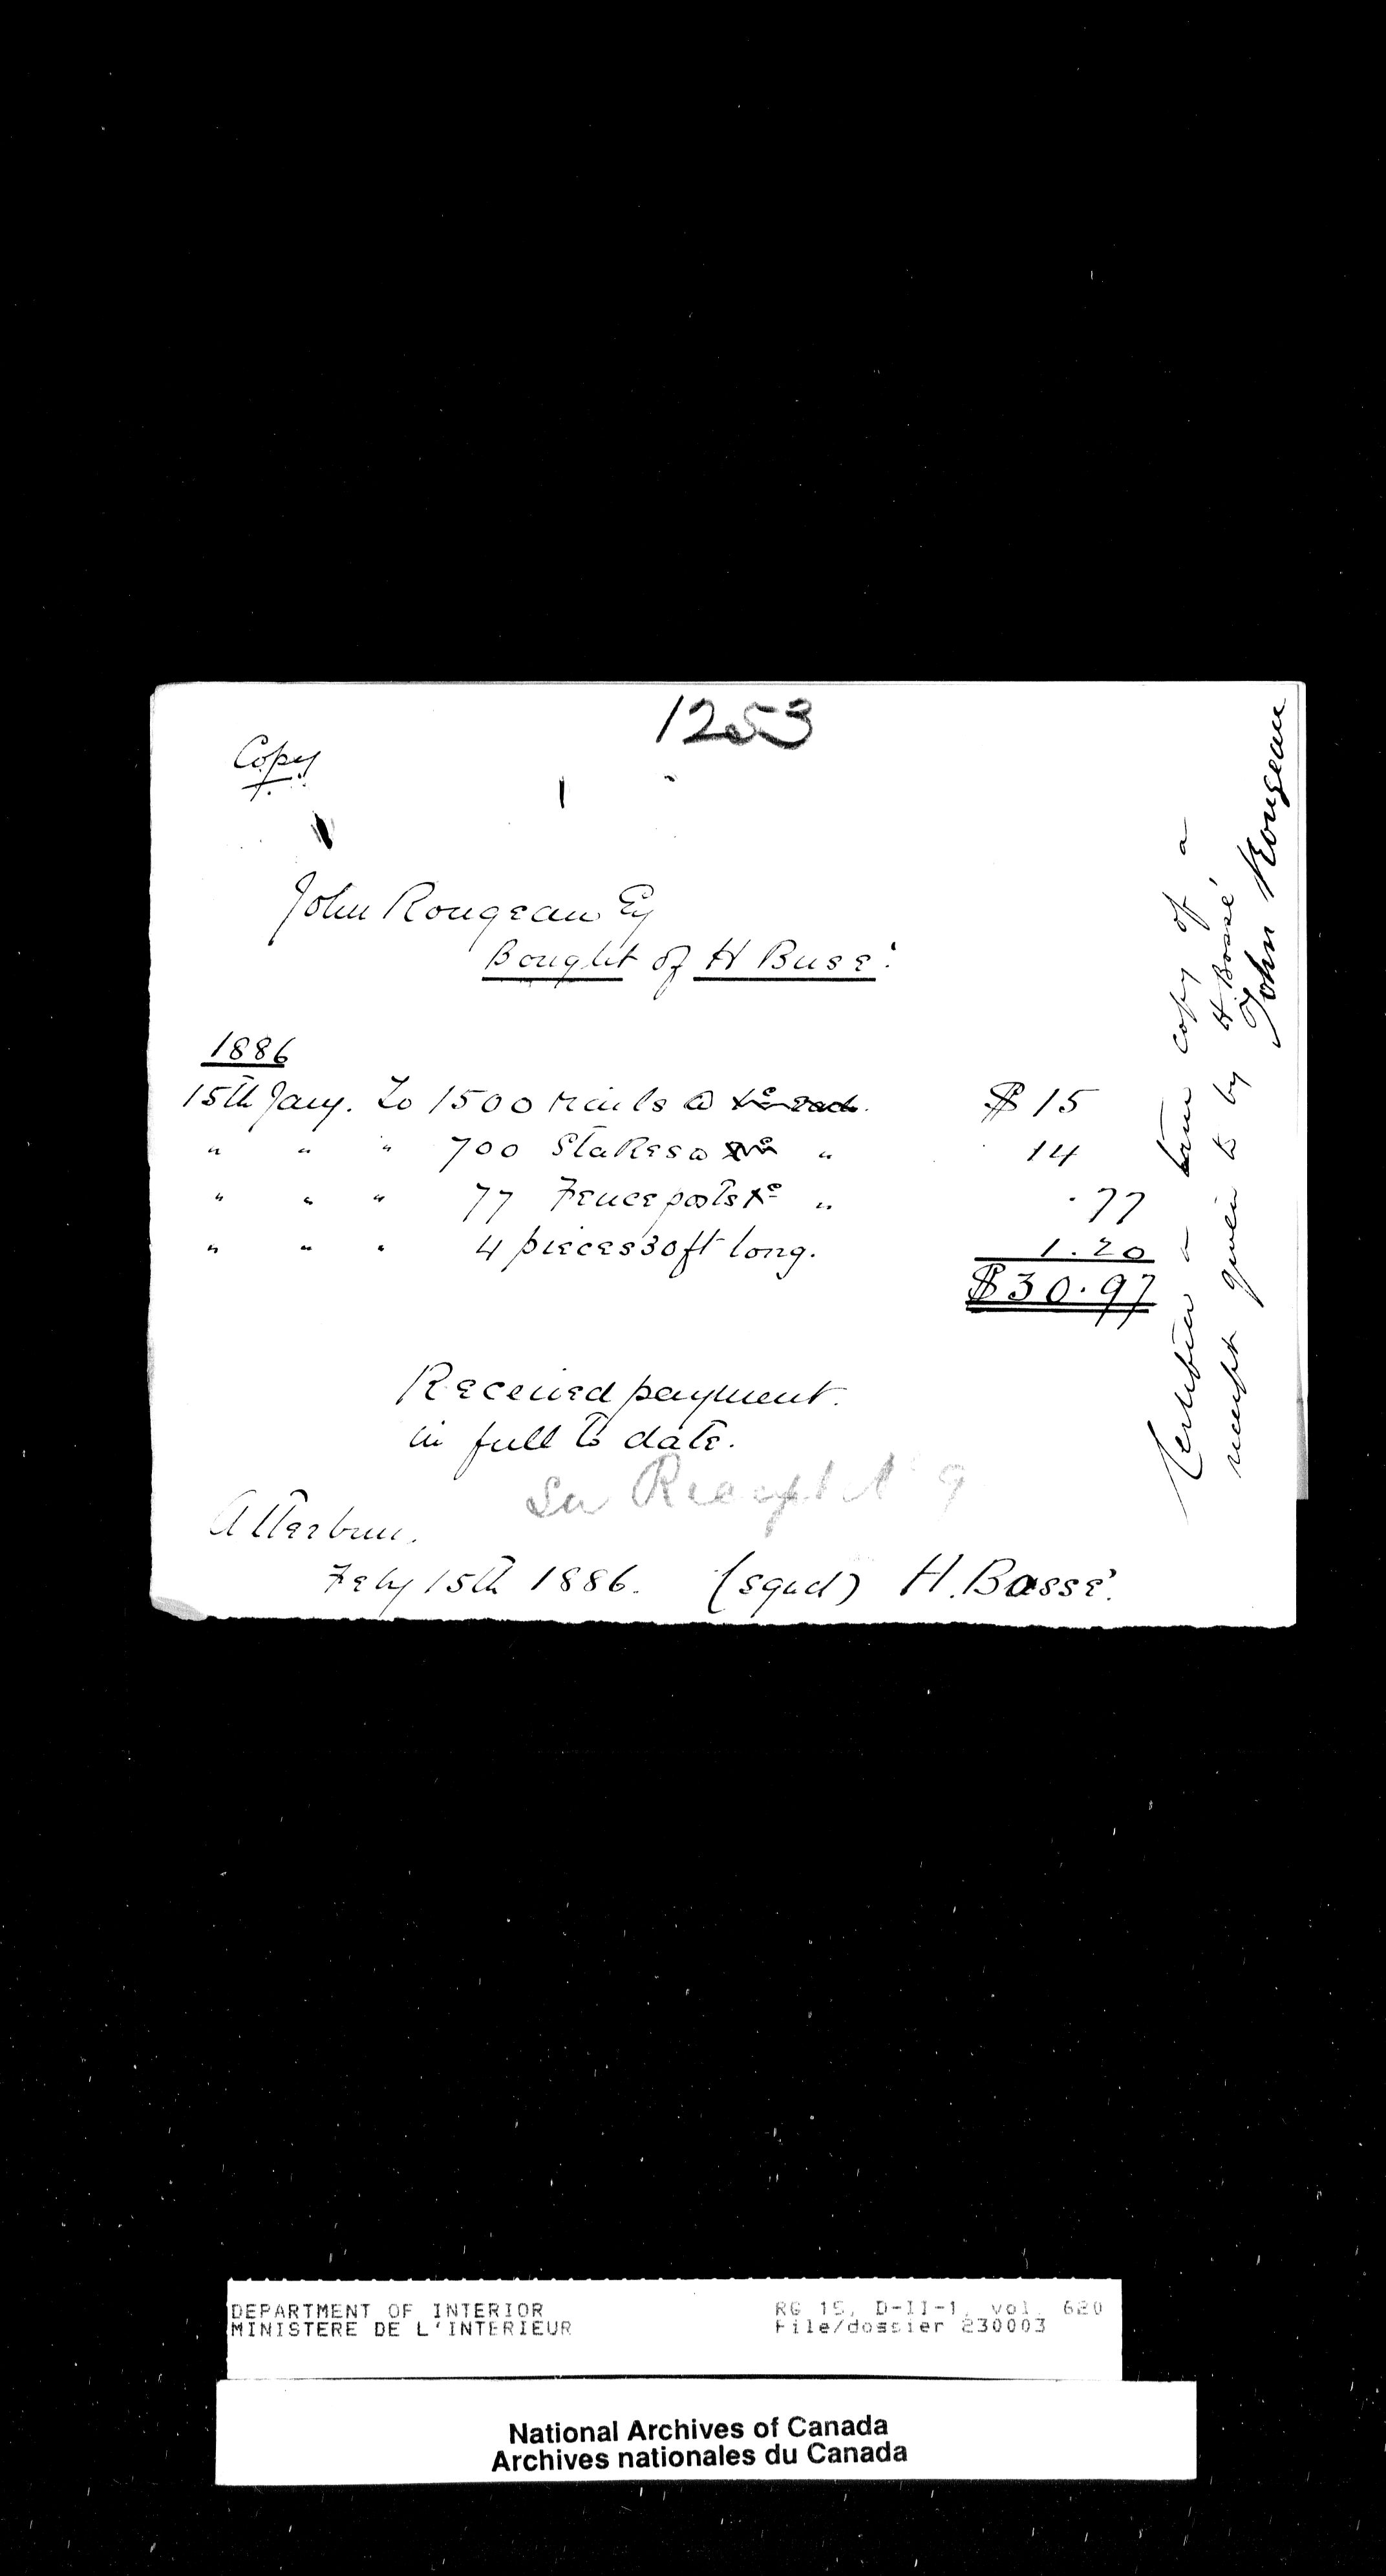 1253
Copy
John Rougeau Eq
Bought of H Busé
1886
15th Jany. To 1500 rails @ $ 15
" " " 700 Stakes @ " 14
" " " 77 Fence posts 1c " .77
" " " 4 pieces 30 ft long. 1.20
$30.97
Received payment.
in full to date.
Receipt No 9
Atterburn.
Feby 15th 1886. (sgnd) H. Bossé.
Certified a true copy of a
receipt given to by H. Bossé,
John Rougeau
DEPARTMENT OF INTERIOR RG 15, D-II-1, vol. 620
MINISTERE DE L'INTERIEUR File/dossier 230003
National Archives of Canada
Archives nationales du Canada